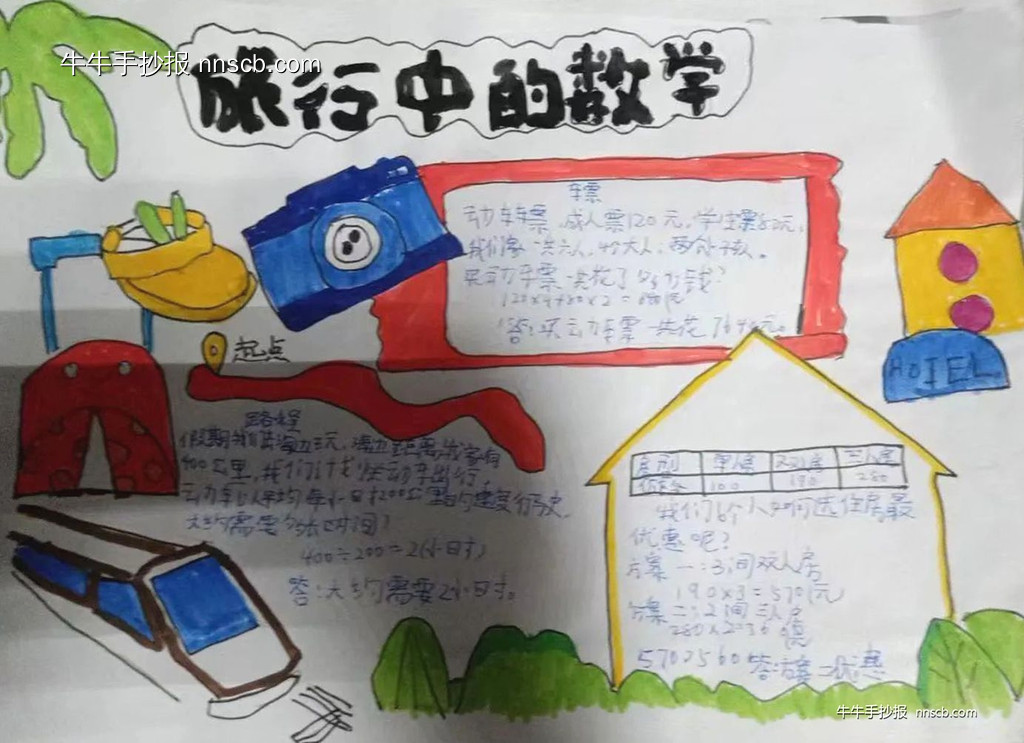 牛牛手抄报 nnscb.com
旅行中的数学
车票
动车车票,成人票120元,学生票80元,
我们家一共六人,4个大人,两个小人。
买动车票一共花了多少钱?
120×4+80×2=640(元)
答:买动车票一共花了640元。
起点
路程
假期我们去海边玩,海边距离我家有
400公里,我们计划坐动车出行
动车以平均每小时200公里的速度行驶,
大约需要多长时间?
400÷200=2(小时)
答:大约需要2小时。
HOTEL
房型 单人房 双人房 三人房
价格 100 190 280
我们6个人如何选住房最
优惠呢?
方案一:3间双人房
190×3=570(元)
方案二:2间三人房
280×2=560
570>560 答:方案二优惠
牛牛手抄报 nnscb.com